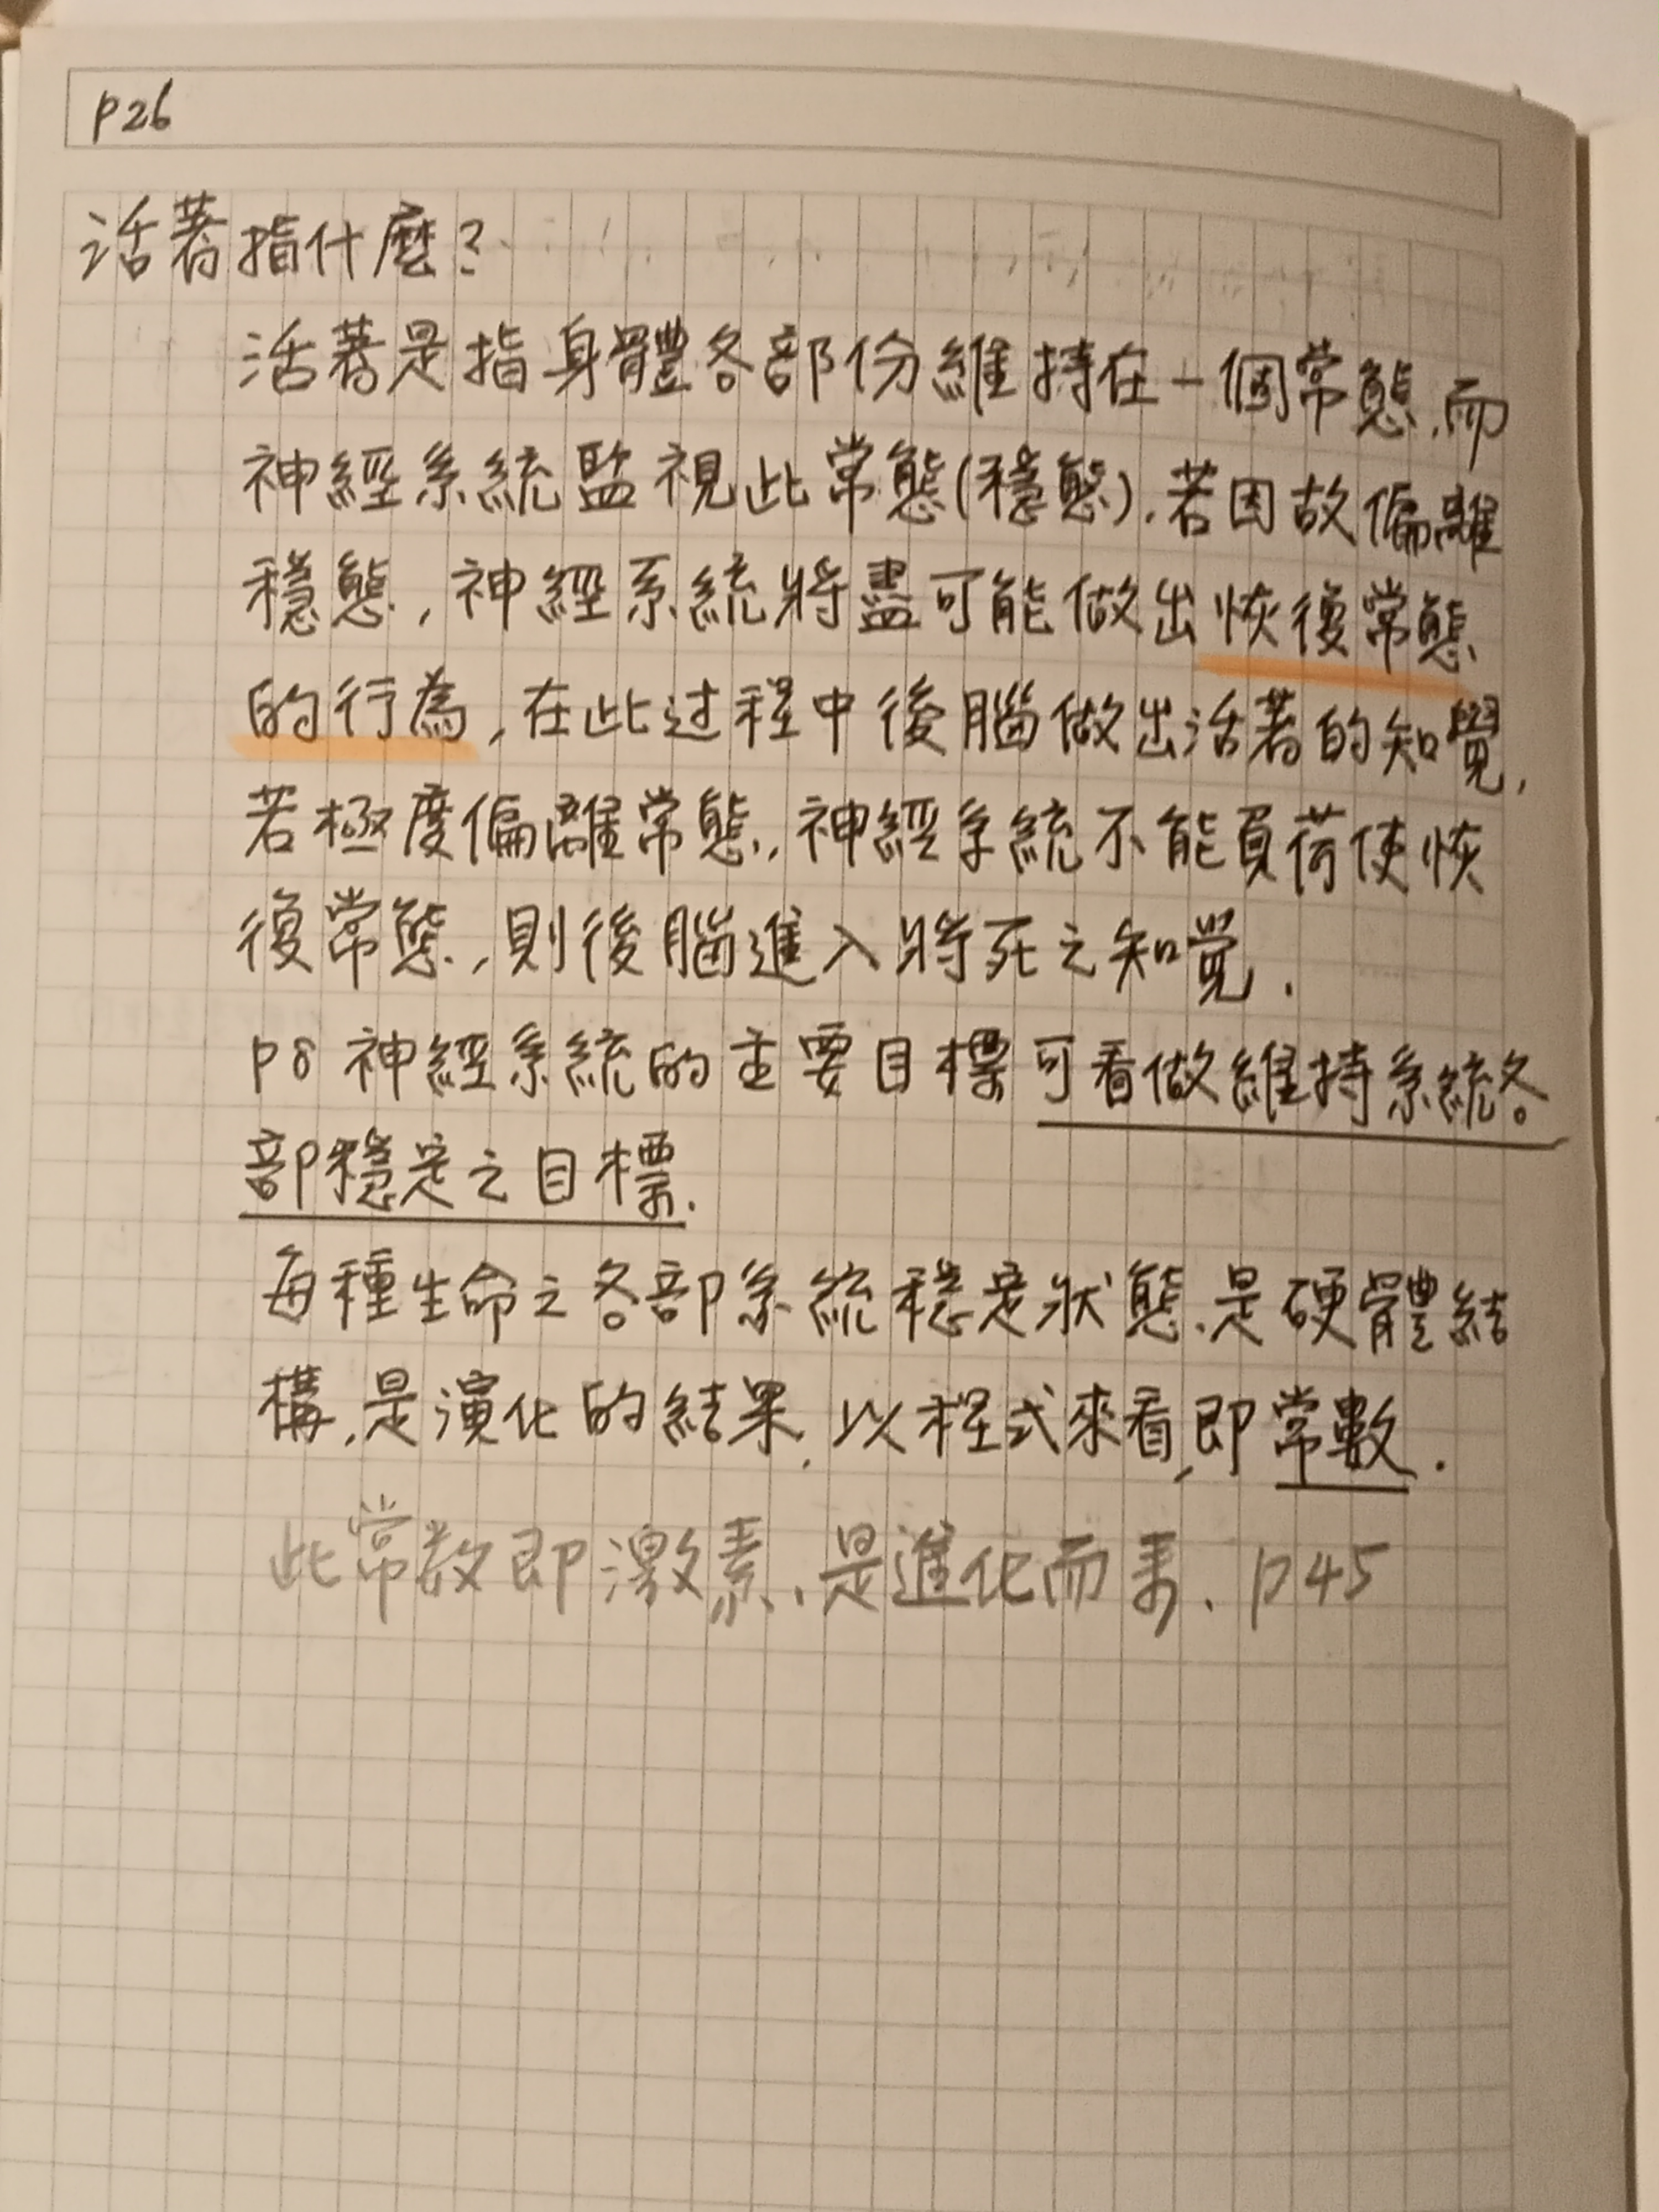 p26
活著指什麼?
活著是指身體各部份維持在一個常態,而
神經系統監視此常態(穩態).若因故偏離
穩態,神經系統將盡可能做出恢復常態
的行為,在此过程中後腦做出活著的知覺,
若極度偏離常態,神經系統不能負荷使恢
復常態,則後腦進入將死之知覚.
P8 神經系統的主要目標可看做維持系統各
部穩定之目標.
每種生命之各部系統穩定狀態.是硬體結
構,是演化的結果,以程式來看,即常數.
此常数即激素,是進化而来. p45